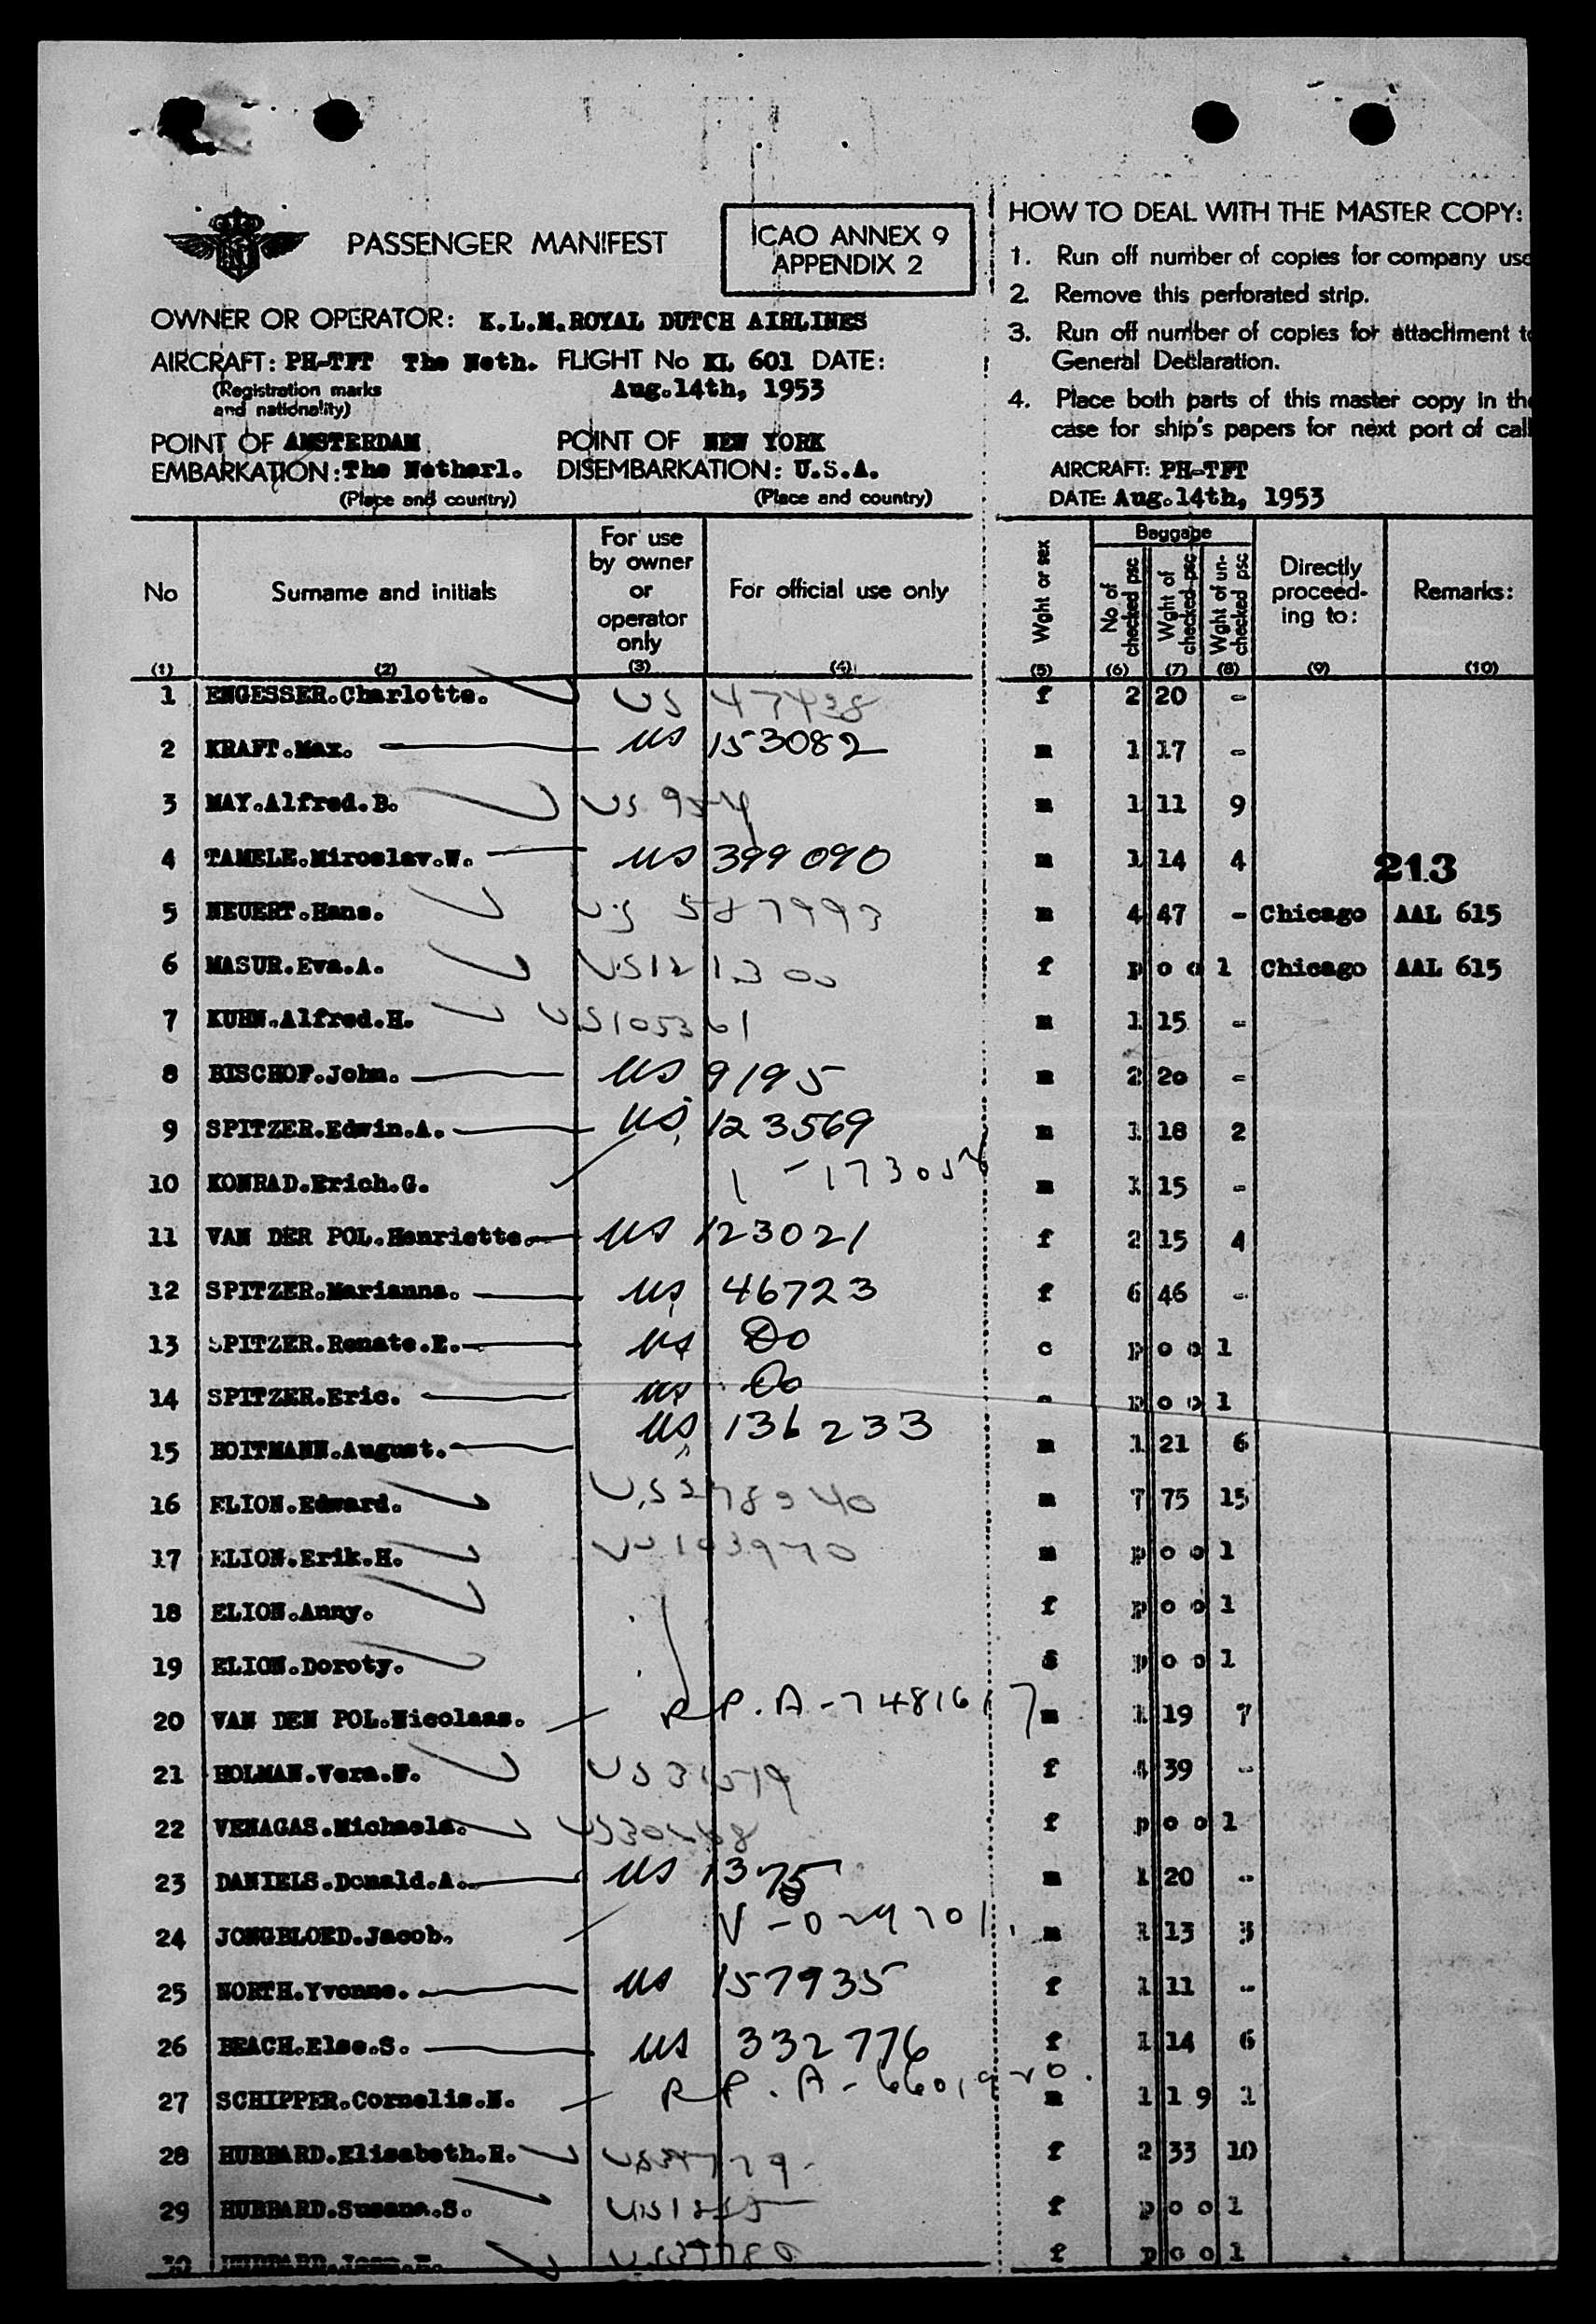 PASSENGER MANIFEST
ICAO ANNEX 9
APPENDIX 2
OWNER OR OPERATOR: K.L.M.ROYAL DUTCH AIRLINES
AIRCRAFT: PH-TFT The Neth. FLIGHT No KL 601 DATE:
(Registration marks and nationality) Aug.14th, 1953
POINT OF AMSTERDAM POINT OF NEW YORK
EMBARKATION: The Netherl. DISEMBARKATION: U.S.A.
(Place and country) (Place and country)
HOW TO DEAL WITH THE MASTER COPY:
1. Run off number of copies for company use
2. Remove this perforated strip.
3. Run off number of copies for attachment to
General Declaration.
4. Place both parts of this master copy in the
case for ship's papers for next port of call
AIRCRAFT: PH-TFT
DATE: Aug.14th, 1953
No Surname and initials For use by owner or operator only For official use only Wght or sex Baggage No of checked psc Wght of checked psc Wght of unchecked psc Directly proceeding to: Remarks:
(1) (2) (3) (4) (5) (6) (7) (8) (9) (10)
1 ENGESSER.Charlotte. US 47438 f 2 20 -
2 KRAFT.Max. US 153082 m 1 17 -
3 MAY.Alfred.B. US m 1 11 9
4 TAMELE.Miroslav.W. US 399090 m 1 14 4
213
5 NEUERT.Hans. US 587993 m 4 47 - Chicago AAL 615
6 MASUR.Eva.A. US 121300 f pool Chicago AAL 615
7 KUHN.Alfred.H. US 105361 m 1 15 -
8 BISCHOF.John. US 9195 m 2 20 -
9 SPITZER.Edwin.A. US 123569 m 1 18 2
10 KONRAD.Erich.G. m 1 15 -
11 VAN DER POL.Henriette. US 123021 f 2 15 4
12 SPITZER.Marianna. US 46723 f 6 46 -
13 SPITZER.Renate.E. US Do c pool
14 SPITZER.Eric. US Do pool
15 BOITMANN.August. US 136233 m 1 21 6
16 ELION.Edward. US 278940 m 7 75 15
17 ELION.Erik.H. US 103970 m pool
18 ELION.Anny. f pool
19 ELION.Doroty. pool
20 VAN DEN POL.Nicolaas. RP.A-7481617 m 1 19 7
21 HOLMAN.Vera.F. US f 4 39 -
22 VENAGAS.Michaela. US f pool
23 DANIELS.Donald.A. US 1375 m 1 20 -
24 JONGBLOED.Jacob. m 1 13 3
25 NORTH.Yvonne. US 157935 f 1 11 -
26 BEACH.Else.S. US 332776 f 1 14 6
27 SCHIPPER.Cornelis.N. RP.A- m 1 19 1
28 HUBBARD.Elisabeth.R. US f 2 33 10
29 HUBBARD.Susana.S. US f pool
30 HUBBARD. US f pool